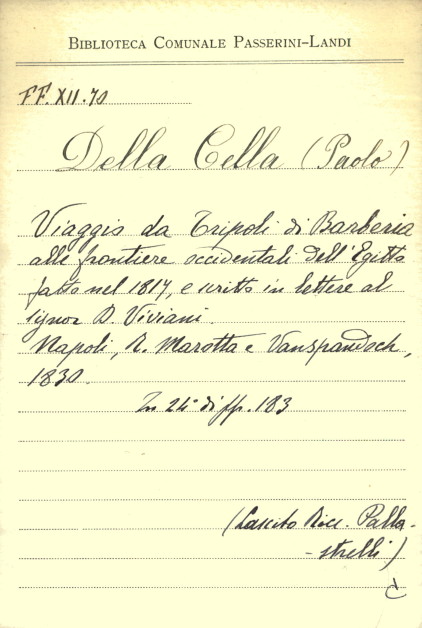 BIBLIOTECA COMUNALE PASSERINI-LANDI
FF. XII. 70
Della Cella (Paolo)
Viaggio da Tripoli di Barberia
alle frontiere occidentali dell'Egitto
fatto nel 1817, e scritto in lettere al
signor D. Viviani.
Napoli, R. Marotta e Vanspandoch,
1830.
In 24° di pp. 183
(Lascito Ricc. Palla-
-strelli)